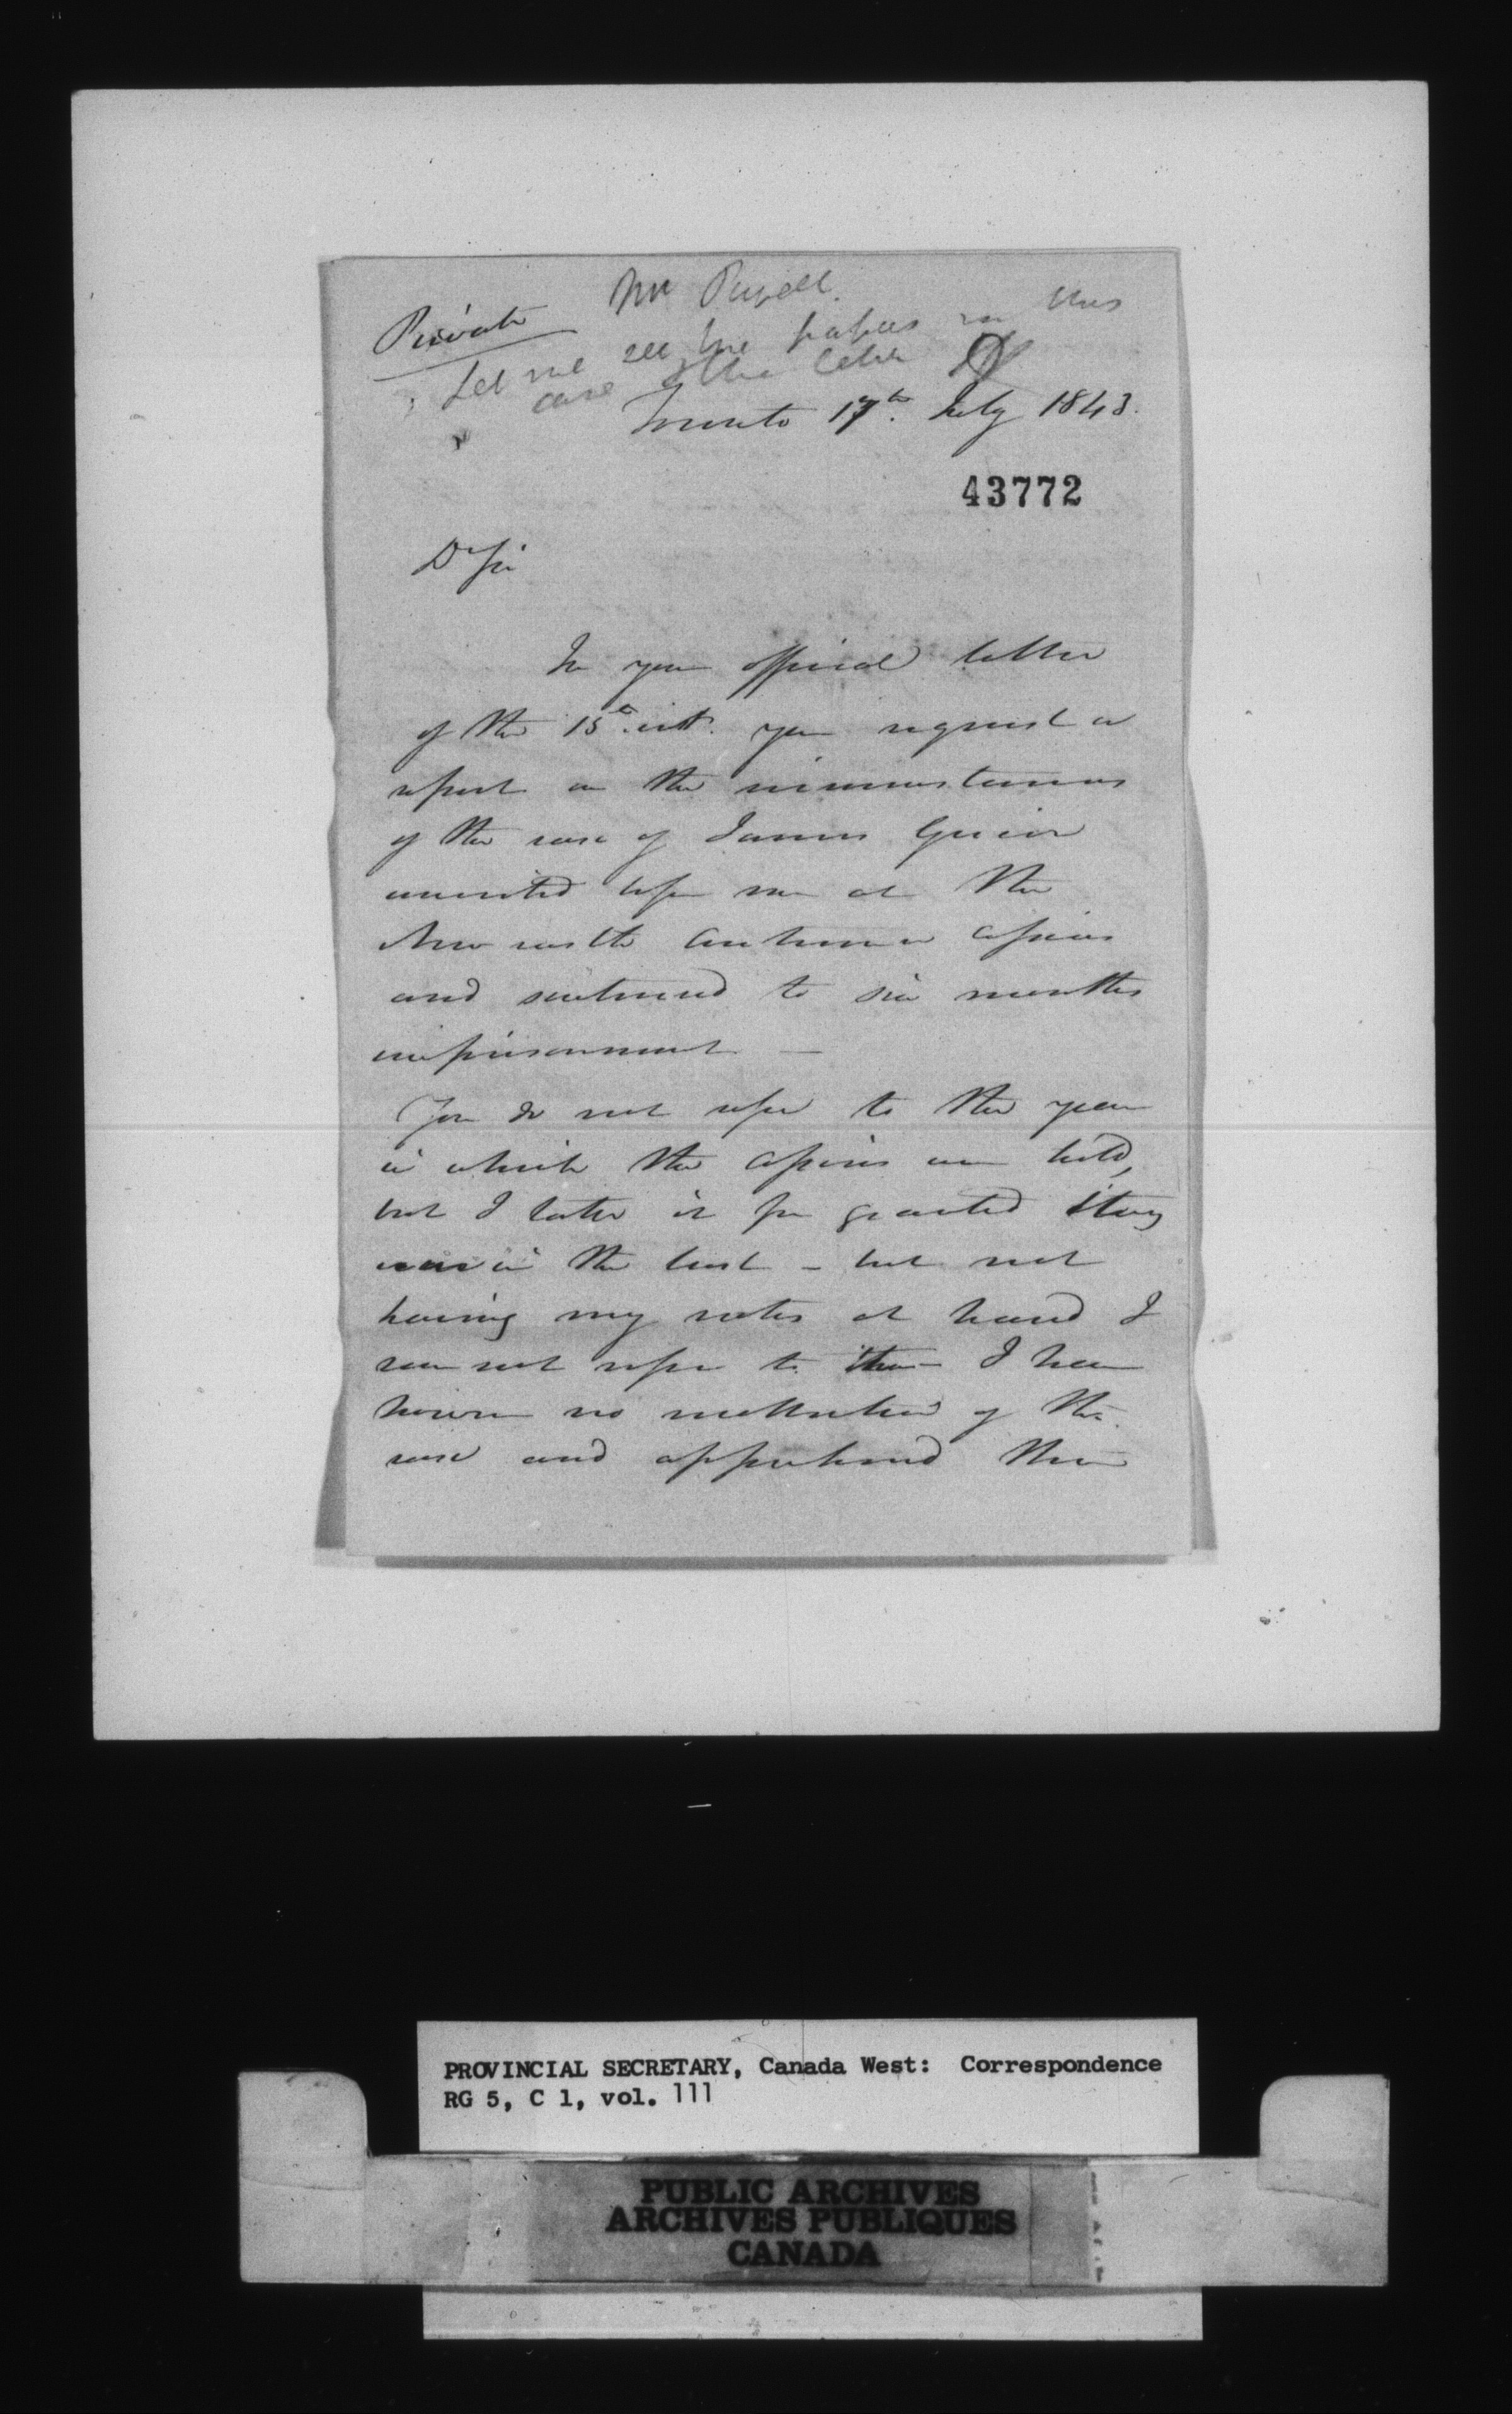 Private
Let me see the papers in this
case & the letter
Toronto 17th. July 1843.
43772
Dr Sir
In your official letter
of the 15th inst. you request a
report on the circumstances
of the case of James
convicted before me at the
New castle Autumn Assizes
and sentenced to six months
imprisonment —
You do not refer to the year
in which the Assizes were held,
but I take it for granted they
were in the last – but not
having my notes at hand I
can not refer to them – I have
however no recollection of the
case and apprehend there
PROVINCIAL SECRETARY, Canada West: Correspondence
RG 5, C 1, vol. 111
PUBLIC ARCHIVES
ARCHIVES PUBLIQUES
CANADA